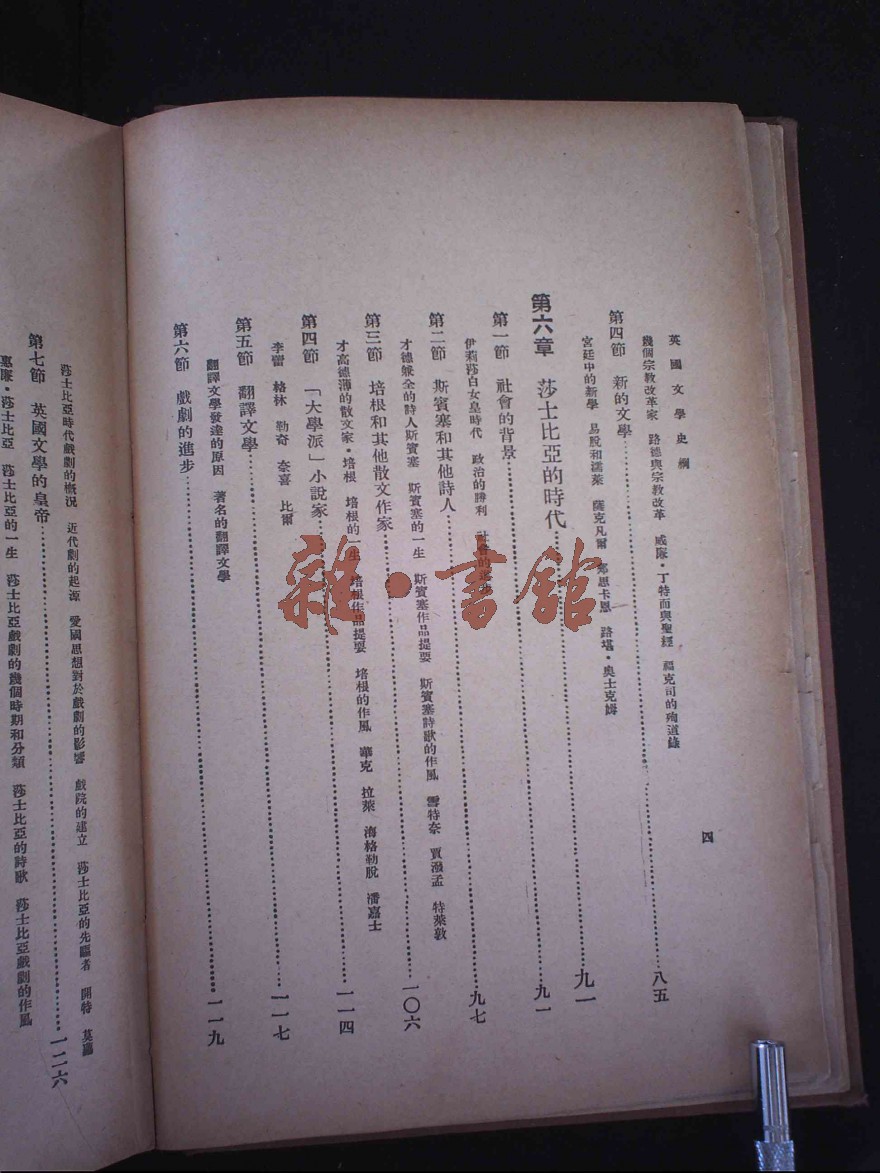 英國文學史綱
四
幾個宗教改革家 路德與宗教改革 威廉·丁特而與聖經 福克司的殉道錄
第四節 新的文學……八五
宮廷中的新學 易脫和濡萊 薩克凡爾 鄧恩卡恩 路堪·奧士克姆
第六章 莎士比亞的時代……九一
第一節 社會的背景……九一
伊莉莎白女皇時代 政治的勝利 社會的進步
第二節 斯賓塞和其他詩人……九七
才德兼全的詩人斯賓塞 斯賓塞的一生 斯賓塞作品提要 斯賓塞詩歌的作風 雪特奈 賈潑孟 特萊敦
第三節 培根和其他散文作家……一〇六
才高德薄的散文家·培根 培根的一生 培根作品提要 培根的作風 華克 拉萊 海格勒脫 潘嘉士
第四節 「大學派」小說家……一一四
李雷 格林 勒奇 奈喜 比爾
第五節 翻譯文學……一一七
翻譯文學發達的原因 著名的翻譯文學
第六節 戲劇的進步……一一九
莎士比亞時代戲劇的概況 近代劇的起源 愛國思想對於戲劇的影響 戲院的建立 莎士比亞的先驅者 開特 莫
第七節 英國文學的皇帝……一二六
惠廉·莎士比亞 莎士比亞的一生 莎士比亞戲劇的幾個時期和分類 莎士比亞的詩歌 莎士比亞戲劇的作風
雜·書館